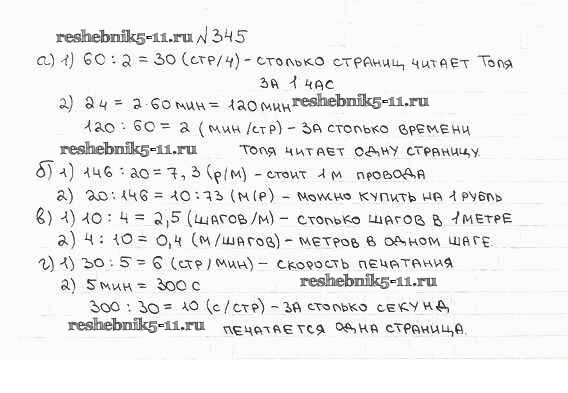 reshebnik5-11.ru №345
а) 1) 60 : 2 = 30 (стр/ч) - столько страниц читает Толя
за 1 час
2) 2ч = 2·60 мин = 120 мин reshebnik5-11.ru
120 : 60 = 2 (мин/стр) - за столько времени
reshebnik5-11.ru Толя читает одну страницу.
б) 1) 146 : 20 = 7,3 (р/м) - стоит 1 м провода
2) 20 : 146 = 10 : 73 (м/р) - можно купить на 1 рубль
в) 1) 10 : 4 = 2,5 (шагов/м) - столько шагов в 1 метре
2) 4 : 10 = 0,4 (м/шагов) - метров в одном шаге.
г) 1) 30 : 5 = 6 (стр/мин) - скорость печатания
2) 5 мин = 300 с reshebnik5-11.ru
300 : 30 = 10 (с/стр) - за столько секунд
reshebnik5-11.ru печатается одна страница.